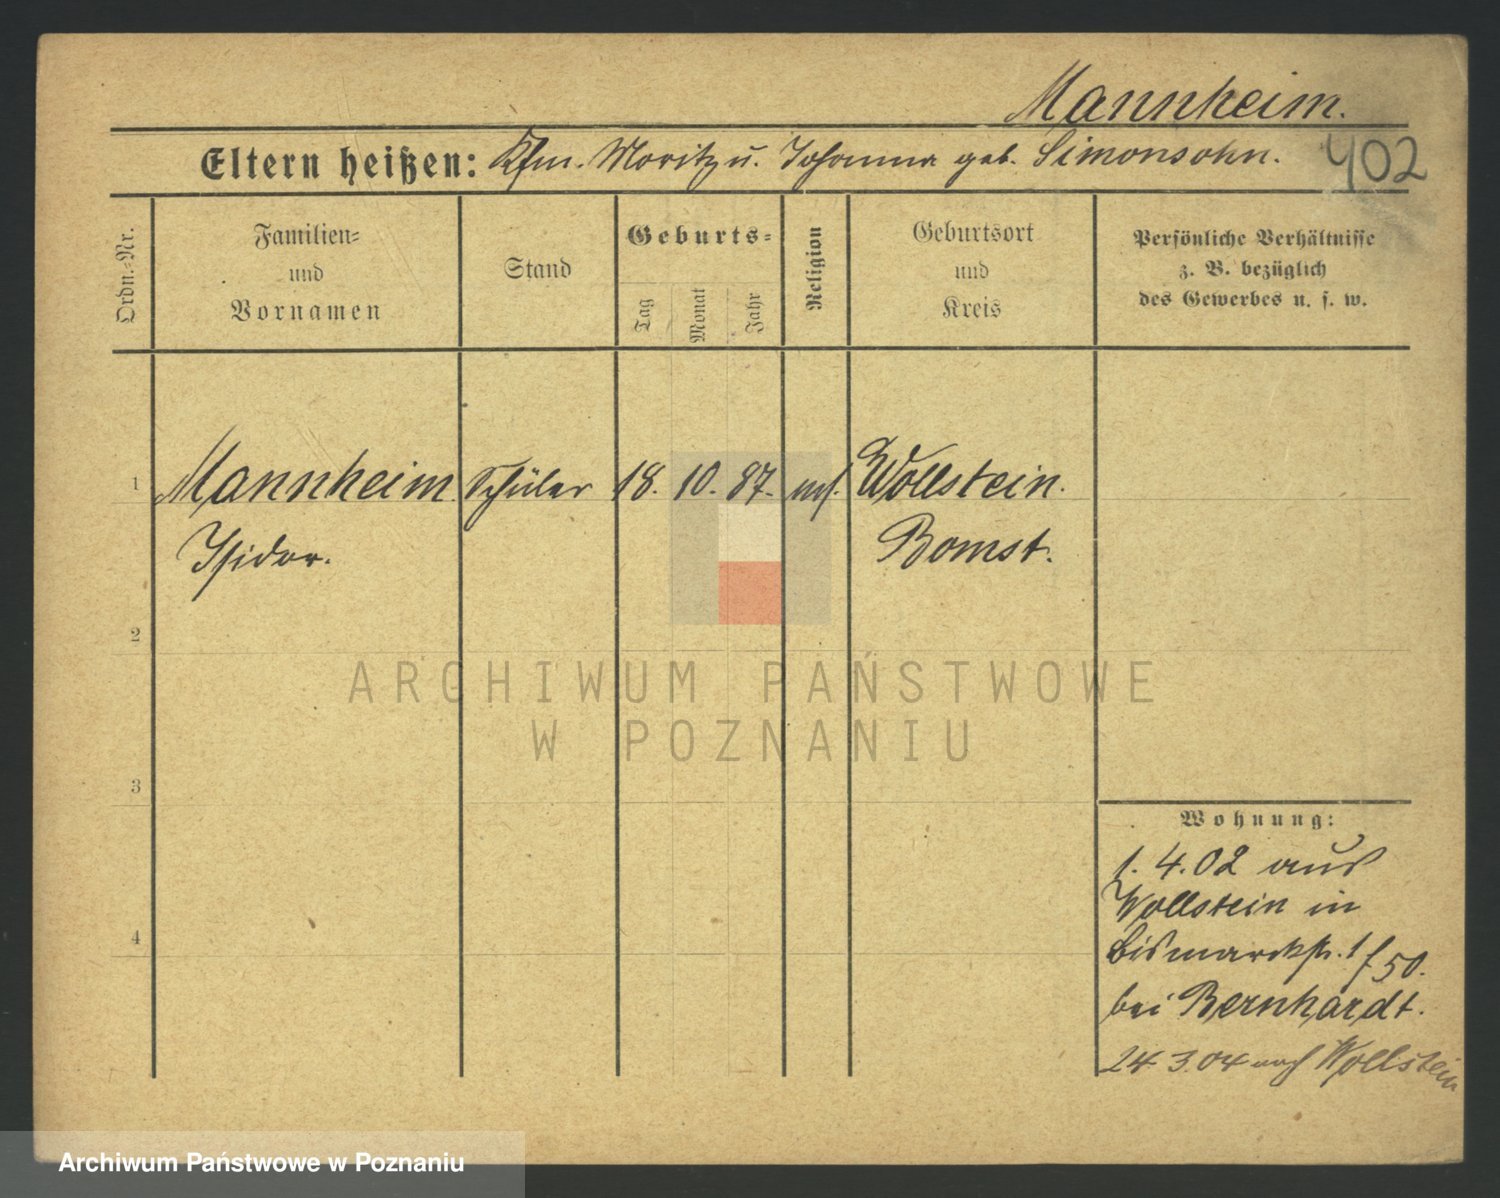 Mannheim.
Eltern heißen: Kfm. Moritz u. Johanna geb. Simonsohn. 402
Ordn.-Nr.
Familien-
und
Vornamen
Stand
Geburts-
Tag
Monat
Jahr
Religion
Geburtsort
und
Kreis
Persönliche Verhältnisse
z. B. bezüglich
des Gewerbes u. s. w.
1 Mannheim Schüler 18. 10. 87. mos. Wollstein.
Isidor. Bomst.
2
3
4
Wohnung:
1. 4. 02 aus
Wollstein in
Bismarckstr. 1 f 50.
bei Bernhardt.
24 3. 04 nach Wollstein
ARCHIWUM PAŃSTWOWE
W POZNANIU
Archiwum Państwowe w Poznaniu